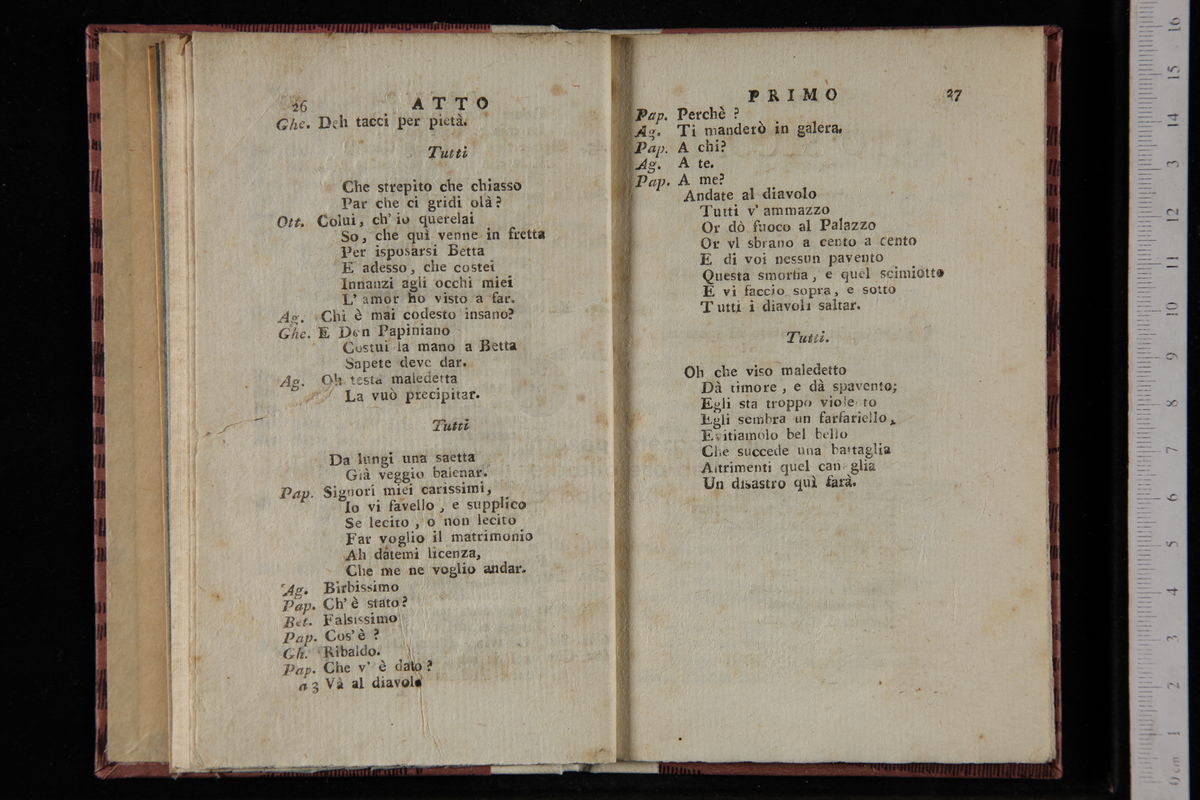 26 ATTO
Ghe. Deh tacci per pietà.
Tutti
Che strepito che chiasso
Par che ci gridi olà?
Ott. Colui, ch' io querelai
So, che quì venne in fretta
Per isposarsi Betta
E adesso, che costei
Innanzi agli occhi miei
L' amor ho visto a far.
Ag. Chi è mai codesto insano?
Ghe. E Don Papiniano
Costui la mano a Betta
Sapete deve dar.
Ag. Oh testa maledetta
La vuò precipitar.
Tutti
Da lungi una saetta
Già veggio balenar.
Pap. Signori miei carissimi,
Io vi favello, e supplico
Se lecito, o non lecito
Far voglio il matrimonio
Ah datemi licenza,
Che me ne voglio andar.
Ag. Birbissimo
Pap. Ch' è stato?
Bet. Falsissimo
Pap. Cos' è ?
Gh. Ribaldo.
Pap. Che v' è dato?
a 3 Và al diavolo
PRIMO 27
Pap. Perchè ?
Ag. Ti manderò in galera.
Pap. A chi?
Ag. A te.
Pap. A me?
Andate al diavolo
Tutti v' ammazzo
Or dò fuoco al Palazzo
Or vi sbrano a cento a cento
E di voi nessun pavento
Questa smorfia, e quel scimiotto
E vi faccio sopra, e sotto
Tutti i diavoli saltar.
Tutti.
Oh che viso maledetto
Dà timore, e dà spavento;
Egli sta troppo viole to
Egli sembra un farfariello,
Evitiamolo bel bello
Che succede una battaglia
Altrimenti quel can glia
Un disastro quì farà.
0 cm 1 2 3 4 5 6 7 8 9 10 11 12 13 14 15 16